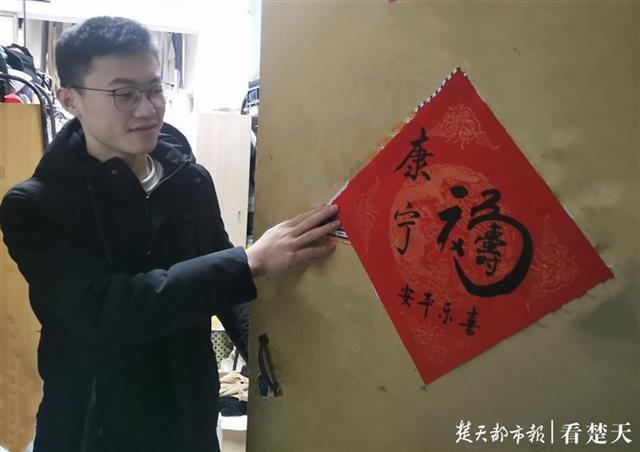 康宁
福
安平乐喜
楚天都市報|看楚天